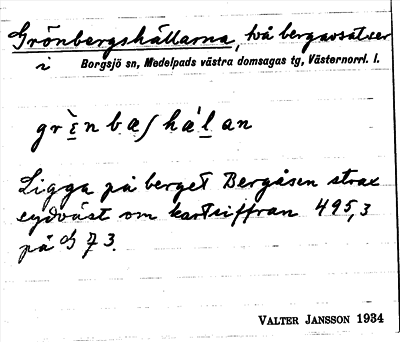 Grönbergshällarna, två bergavsatser
i Borgsjö sn, Medelpads västra domsagas tg, Västernorrl. l.
grὲnbæʃhálan
Ligga på berget Bergåsen strax
sydväst om kartsiffran 495,3
på
3.
VALTER JANSSON 1934